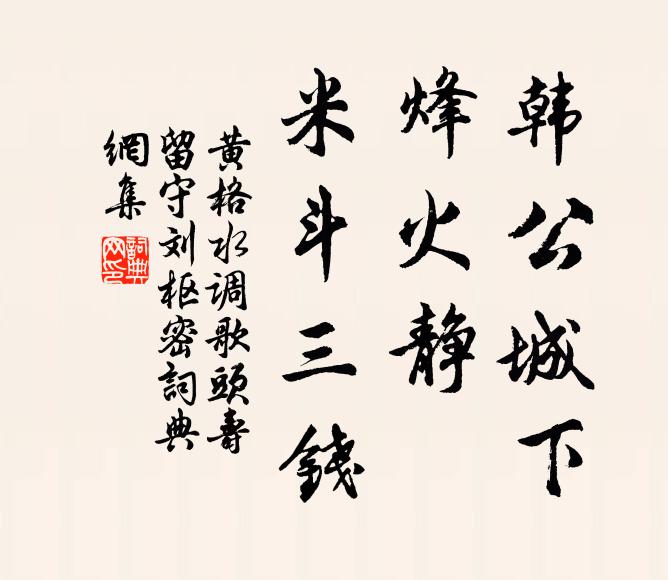 韩公城下
烽火静
米斗三錢
黄格水调歌頭壽
留守刘枢密詞典
網集
詞典网印